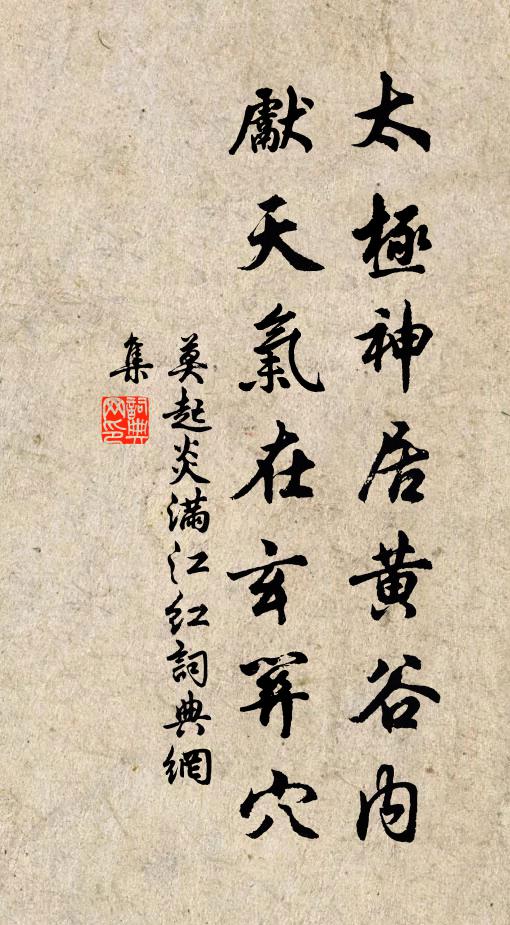 太極神居黄谷内
獻天氣在玄關穴
莫起炎滿江紅詞典網
集
詞典
网印